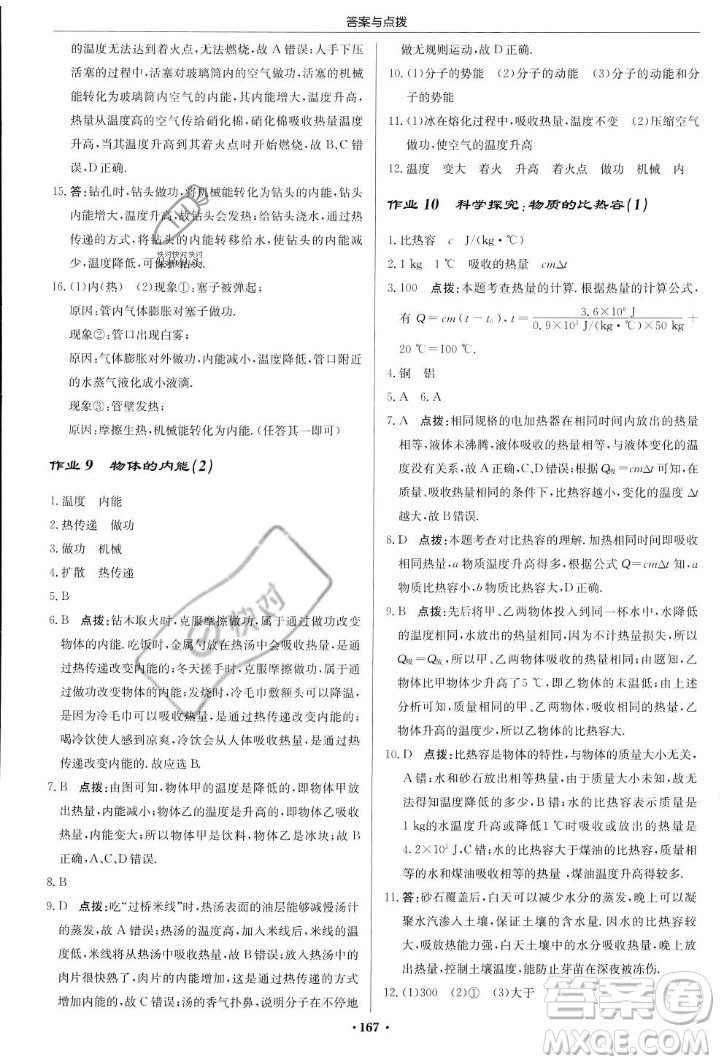 答案与点拨
的温度无法达到着火点,无法燃烧,故 A 错误;人手下压
活塞的过程中,活塞对玻璃筒内的空气做功,活塞的机械
能转化为玻璃筒内空气的内能,其内能增大,温度升高,
热量从高温的空气传给硝化棉,硝化棉吸收热量温度
升高,当其温度升高到其着火点时开始燃烧,故 B、C 错
误,D 正确.
15. 答:钻孔时,钻头做功,将机械能转化为钻头的内能,钻头
内能增大,温度升高,故钻头会发热;给钻头浇水,通过热
传递的方式,将钻头的内能转移给水,使钻头的内能降
低,温度降低,可保护钻头.
16. (1)内(热) (2)现象①:塞子被弹起;
原因:管内气体膨胀对塞子做功.
现象②:管口出现白雾;
原因:气体膨胀对外做功,内能减小,温度降低,管口附近
的水蒸气液化成小液滴.
现象③:管壁发热;
原因:摩擦生热,机械能转化为内能.(任答其一即可)
作业 9 物体的内能(2)
1. 温度 内能
2. 热传递 做功
3. 做功 机械
4. 扩散 热传递
5. B
6. B 点拨:钻木取火时,克服摩擦做功,是通过做功改变
物体的内能.吃饭时,金属勺放在热汤中会吸收热量,是通
过热传递改变内能的;冬天搓手时,克服摩擦做功,属于通
过做功改变物体的内能;发烧时,冷毛巾敷额头可以降温,
是因为冷毛巾可以吸收热量,是通过热传递改变内能的;
喝冷饮使人感到凉爽,冷饮吸收热量,是通过热传递改变
内能的.故应选 B.
7. B 点拨:由图可知,物体甲的温度是降低的,即物体甲放
出热量,内能变小;物体乙的温度是升高的,即物体乙吸收
热量,内能变大;所以物体甲是饮料,物体乙是冰块;故 B
正确,A、C、D 错误.
8. B
9. D 点拨:吃“过桥米线”时,热汤表面的油层能够减慢汤汁
的蒸发,故 A 错误;热汤的温度高,米线的温度低,米线会
从热汤中吸收热量,故 B 错误;热汤的温度高,放在热汤中的
肉片很快熟了,肉片的内能增加,是通过热传递的方式
增加了内能,故 C 错误;汤的香气扑鼻,说明分子在不停地
做无规则运动,故 D 正确.
10. (1)分子的势能 (2)分子的动能 (3)分子的动能和分
子的势能
11. (1)冰在熔化过程中,吸收热量,温度不变 (2)压缩空气
做功,使空气的温度升高
12. 温度 变大 着火 升高 着火点 做功 机械 内
作业 10 科学探究:物质的比热容(1)
1. 比热容 c J/(kg·℃)
2. 1 kg 1 ℃ 吸收的热量 cmΔt
3. 100 点拨:本题考查热量的计算.由热量的计算公式,
有 Q=cm(t-t₀),t=3.6×10⁶ J/0.9×10³ J/(kg·℃)×50 kg+
20 ℃=100 ℃.
4. 铜 铝
5. A 6. A
7. A 点拨:相同规格的电加热器在相同时间内放出的热量
相同,液体未沸腾,液体吸收的热量与液体温度的变化温
度没有关系,故 A 正确,C、D 错误;根据 Q吸=cmΔt 可知,
质量、吸收热量相同的条件下,比热容越小,温度变化 Δt
越大,故 B 错误.
8. D 点拨:本题考查对比热容的理解.加热相同时间即吸收
热量相同,a 物质温度升高得多,根据公式 Q=cmΔt 知,a
物质比热容较小,b 物质比热容较大,故 D 正确.
9. B 点拨:先后将甲、乙两物体投入到同一杯水中,水降低
的温度相同,水放出的热量相同,因不计热量损失,所以
Q吸=Q放,所以甲、乙两物体吸收的热量相同;由题知,乙
物体比甲物体少升高了5 ℃,即乙物体的末温低;由上述
分析可知,质量相同的甲、乙两物体,吸收相同的热量,乙
物体升高的温度少,所以乙物体的比热容大.
10. D 点拨:比热容是物体的特性,与物体的质量大小无关,
A 错;水和砂石放出相等热量,因质量大小未知,故无法
比较水和砂石降低的温度,B 错;水的比热容表示质量是
1 kg的水温度升高(或降低)1 ℃吸收(或放出)的热量为
4.2×10³ J,C 错;水的比热容大于煤油的比热容,质量相
等的水和煤油,吸收相等热量后,煤油温度升高得多,
D 对.
11. 答:砂石覆盖后,白天可以减少水分的蒸发,晚上可以凝
聚水汽渗人土壤,保护了土壤的含水量.白天砂石吸收热
量,放热能力强,晚上土壤中的水分吸收热量,减少热量
散失,控制土壤温度,防止芽苗在深夜和清晨冻伤.
12. (1)300 (2)① (3)大于
·167·
快对
答案